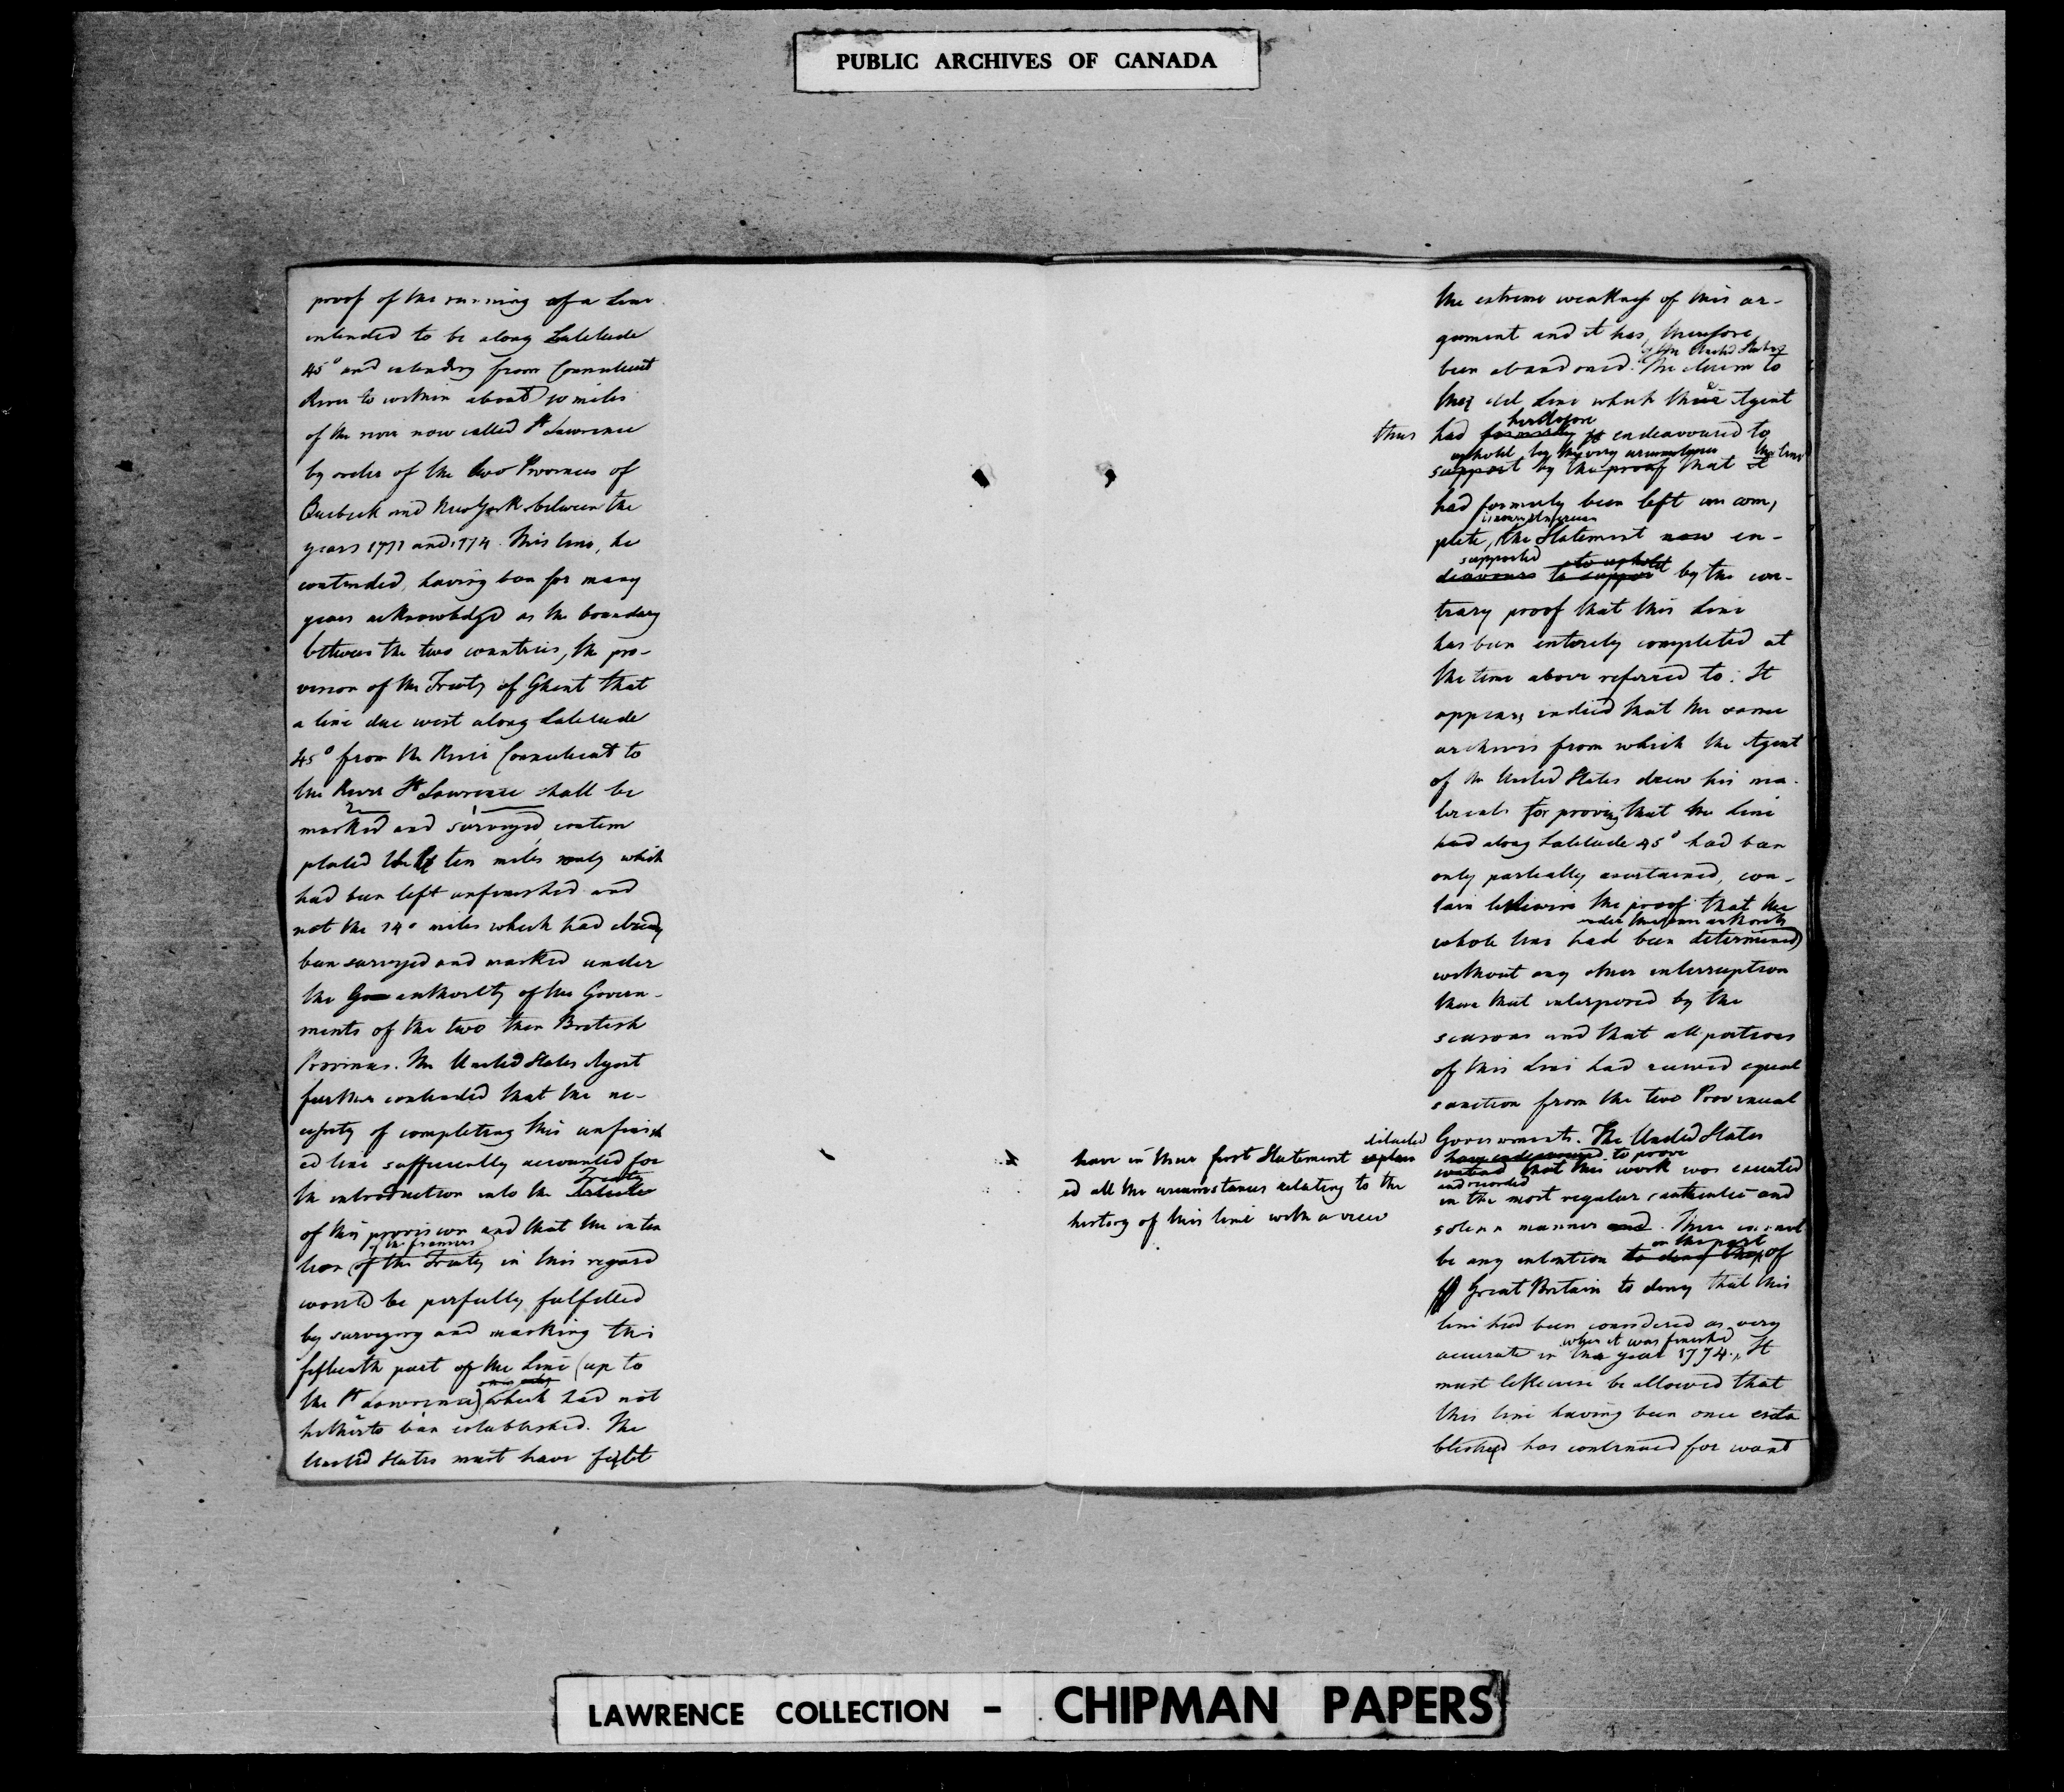 PUBLIC ARCHIVES OF CANADA
proof of the running of a Line
intended to be along Latitude
45° and extending from Connecticut
River to within about 10 miles
of the river now called St Lawrence
by order of the two Provinces of
Quebeck and New York between the
years 1771 and 1774. This line, he
contended, having been for many
years acknowledged as the boundary
between the two countries, the pro-
vision of the Treaty of Ghent that
a line due west along Latitude
45° from the River Connecticut to
the River St Lawrence shall be
2 1
marked and surveyed, contem
plated the ten miles only which
had been left unfinished and
not the 140 miles which had already
been surveyed and marked under
the authority of the Govern-
ments of the two then British
Provinces. The United States Agent
further contended that the ne-
cessity of completing this unfinish
ed line sufficiently accounted for
Treaty
the introduction into the
of this provision and that the inten
of the framers
tion of the Treaty in this regard
would be perfectly fulfilled
by surveying and marking the
fifteenth part of the Line (up to
the St Lawrence) which had not
hitherto been established. The
United States must have felt
the extreme weakness of this ar-
gument and it has, therefore
of the United States
been abandoned. The claim to
the old Line which their Agent
heretofore
thus had formerly endeavoured to
uphold by the very circumstance the line
support by the proof that it
had formerly been left uncom,
plete, the Statement now en-
supported to uphold
deavours to support by the con-
trary proof that this Line
has been entirely completed at
the time above referred to: It
appears, indeed that the same
archives from which the Agent
of the United States drew his ma-
terials for proving that the Line
had along Latitude 45° had been
only partially ascertained, con-
tain likewise the proof that the
under the same authority
whole line had been determined
without any other interruption
than that interposed by the
seasons and that all portions
of this Line had received equal
sanction from the two Provincial
Governments. The United States
detailed
have in their first Statement explain
ed all the circumstances relating to the
history of this line with a view
have endeavoured to prove
contend that this work was executed
and recorded
in the most regular authentic and
solemn manner and. There cannot
on the part
be any intention to deny that of
Great Britain to deny that this
line had been considered as very
when it was finished
accurate in the year 1774. It
must likewise be allowed that
this line having been once esta
blished has continued for want
LAWRENCE COLLECTION - CHIPMAN PAPERS